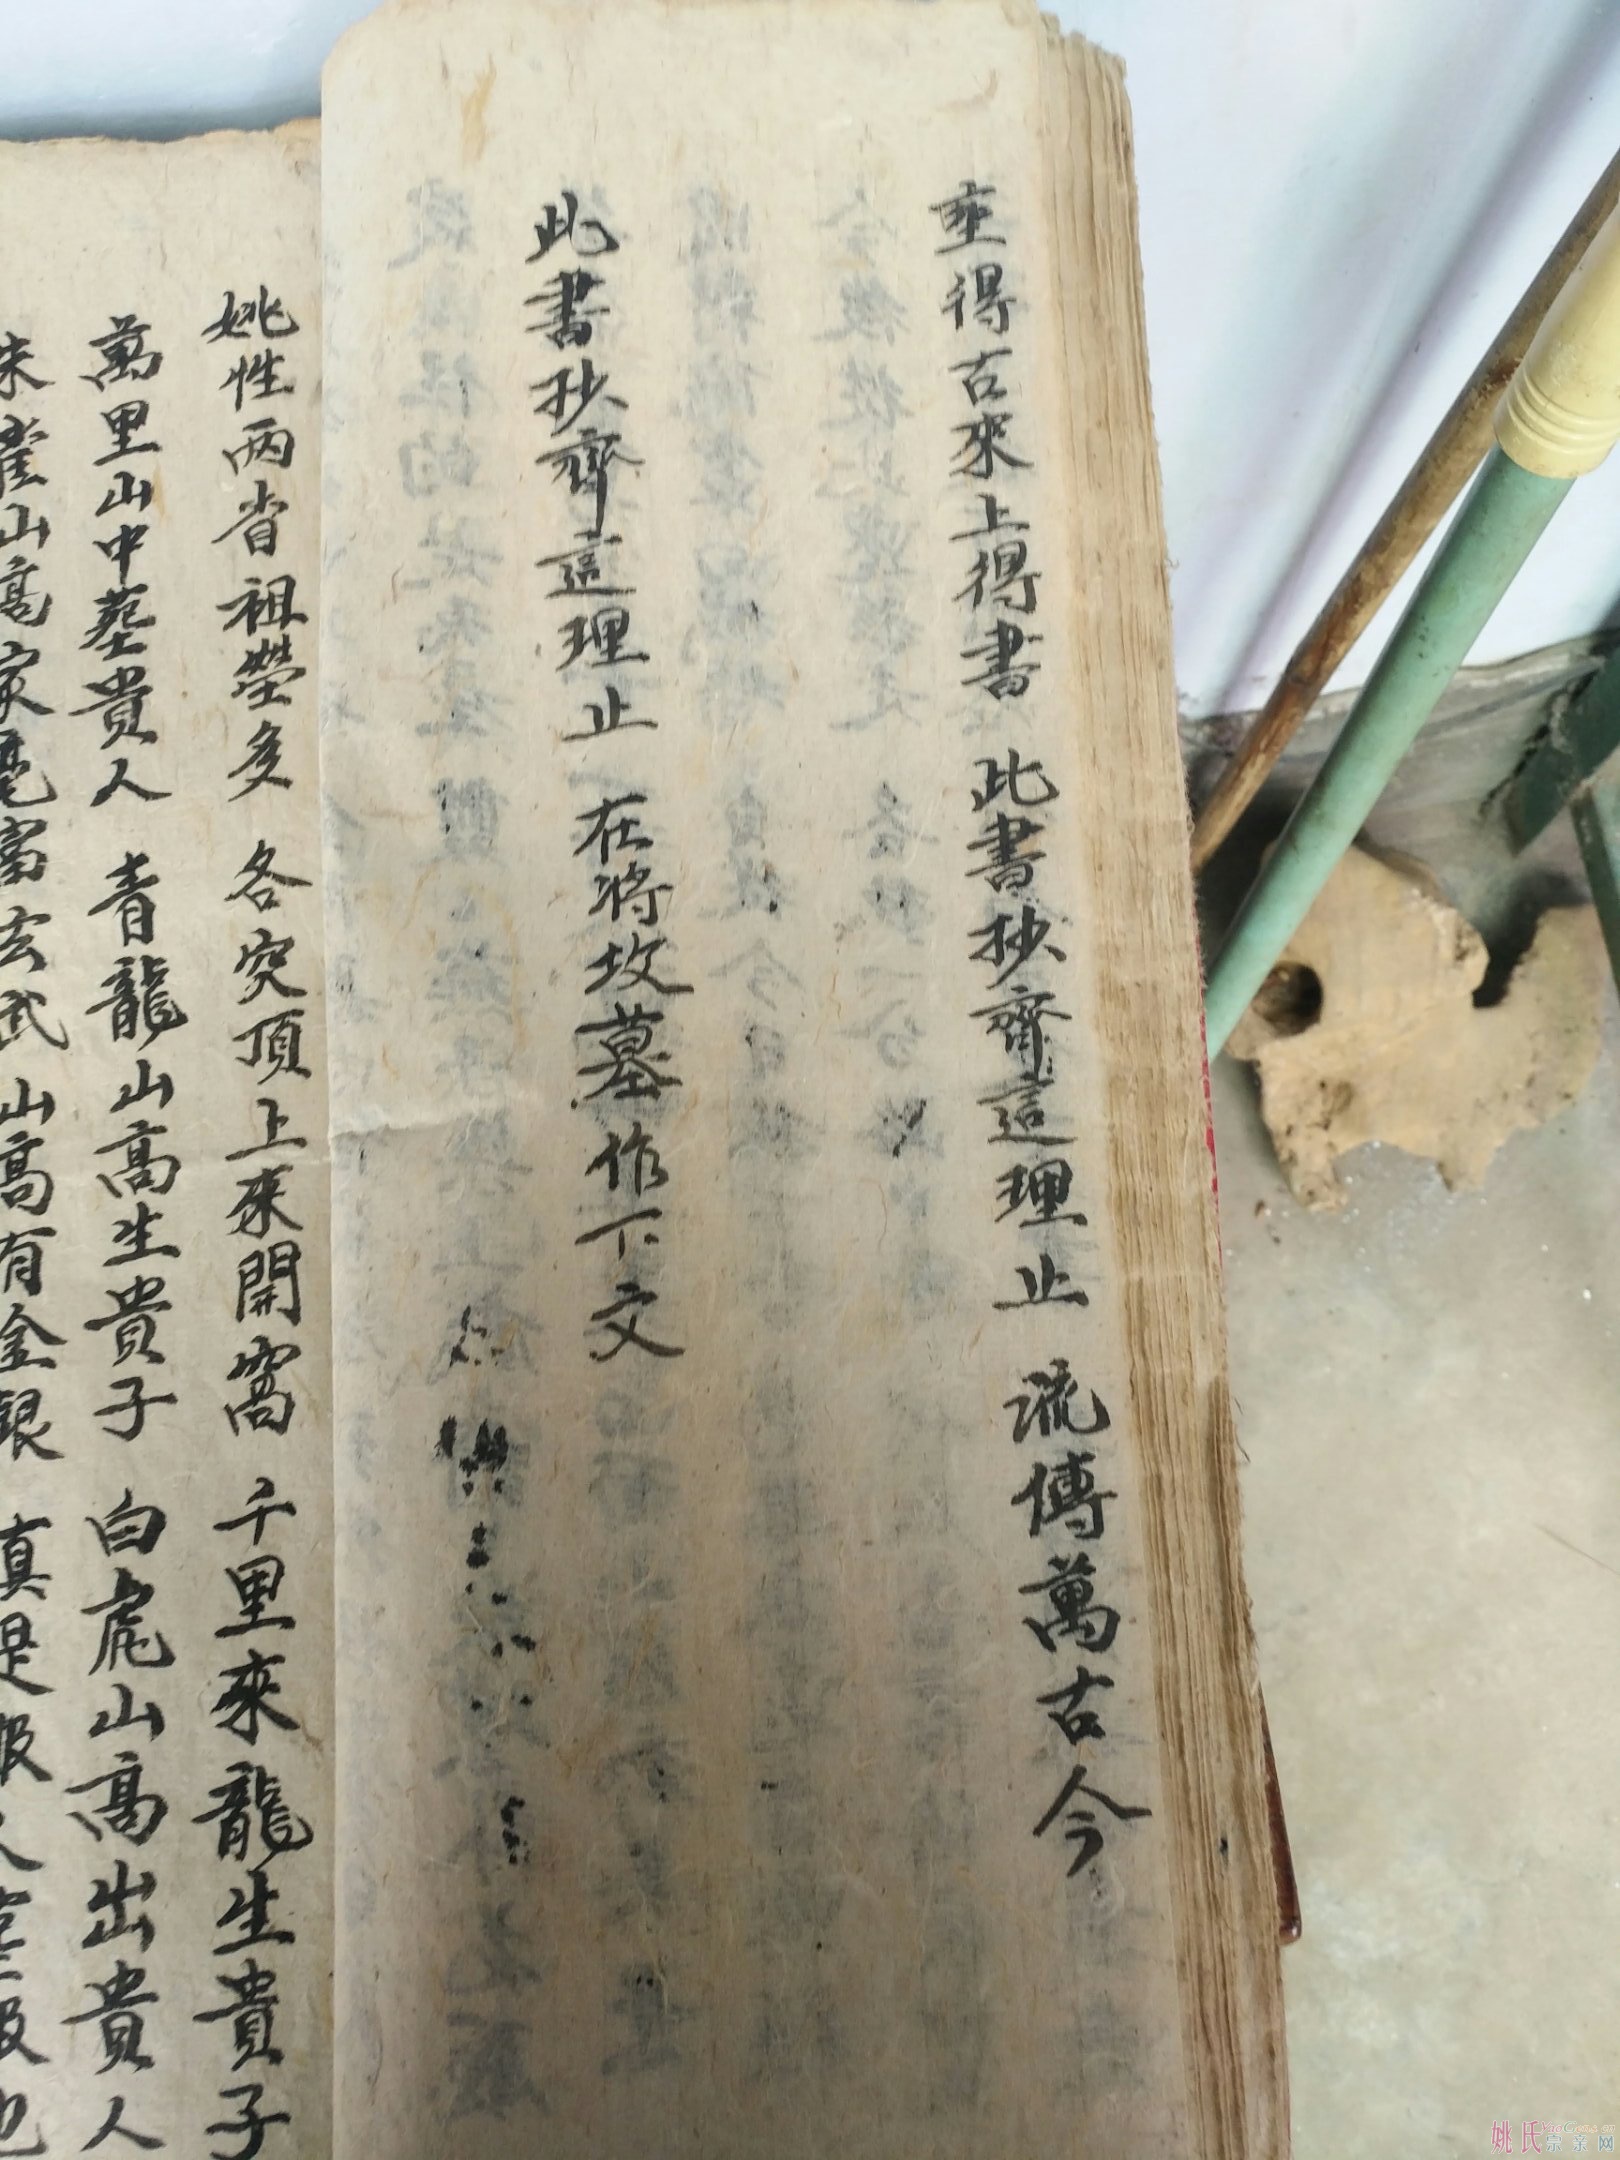 至得古來上得書 此書抄齊這理止 流傳萬古今
此書抄齊這理止 在將坟墓作下文
姚性两省祖塋多 各突頂上來開窩 千里來龍生貴子
萬里山中墓貴人 青龍山高生貴子 白虎山高出貴人
朱雀山高家毫富玄武山高有金銀 真是报也
姚氏宗亲网
YaoGens.cn